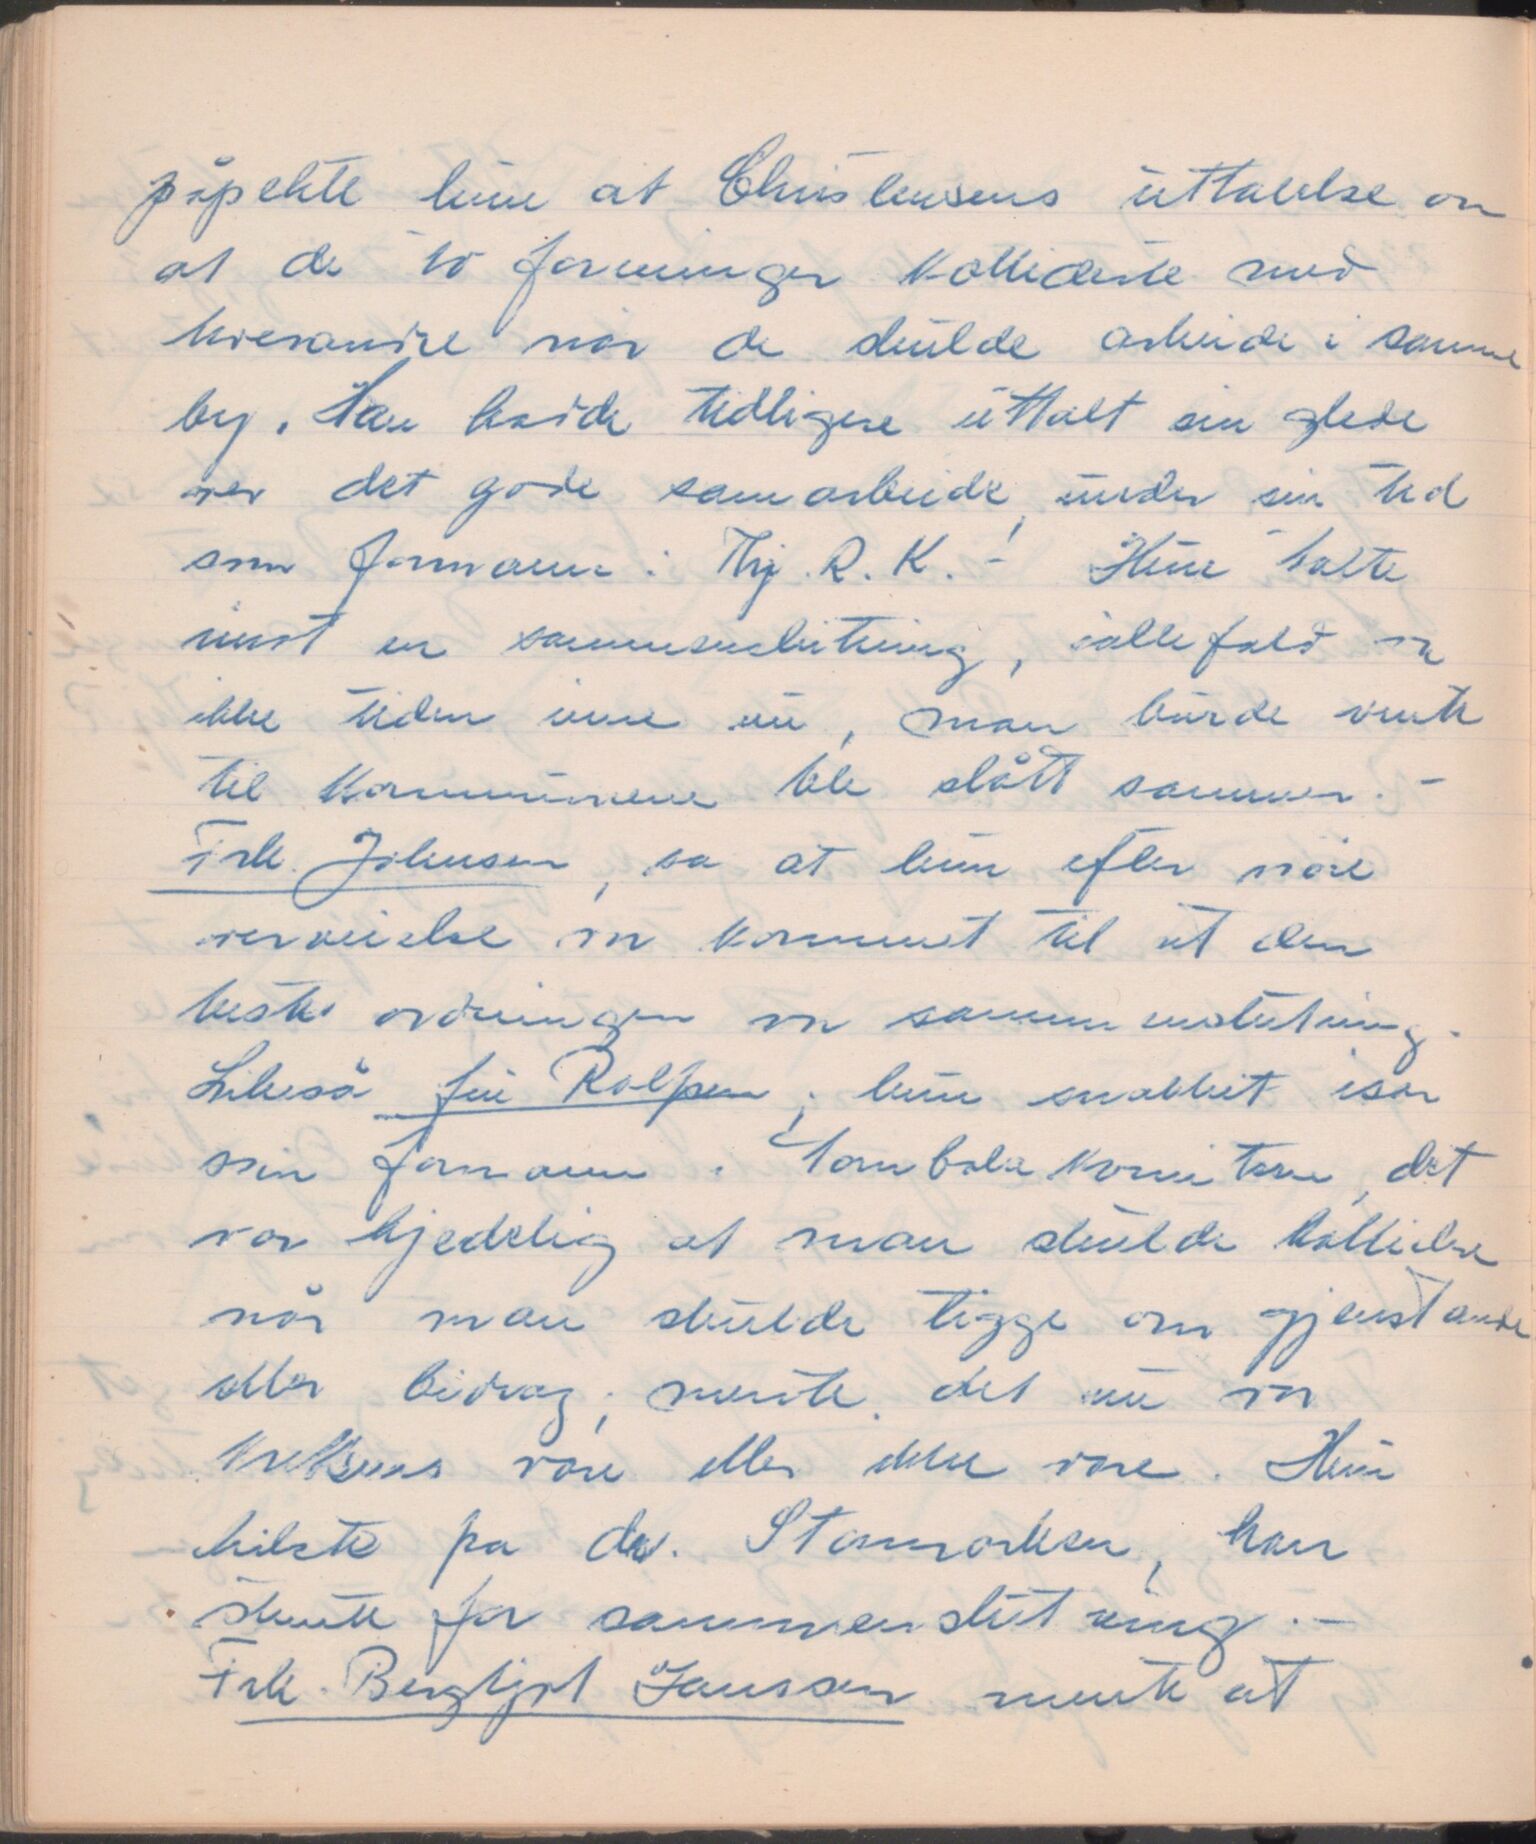 påpekte hun at Christensens uttalelse om
at de to foreninger kolliderte med
hverandre når de skulde arbeide i samme
by. Han hadde tidligere uttalt sin glede
over det gode samarbeide, under sin tid
som formann i Hg. R. K. - Hun talte
imot en sammenslutning, ialle fald var
ikke tiden inne nu, man burde vente
til kommunene ble slått sammen. -
Frk. Johnsen, sa at hun efter nöie
overveielse var kommet til at den
beste ordningen var sammenslutning.
Likeså fru Rolfsen; hun snakket som
sin formann i Tombolakomiteen, det
var kjedelig at man skulde kollidere
når man skulde tigge om gjenstande
eller bidrag; mente det nu var
Kretsens være eller ikke være. Hun
hilste fra dr. Stormorken, han
stemte for sammenslutning. -
Frk. Bergljot Janssen mente at